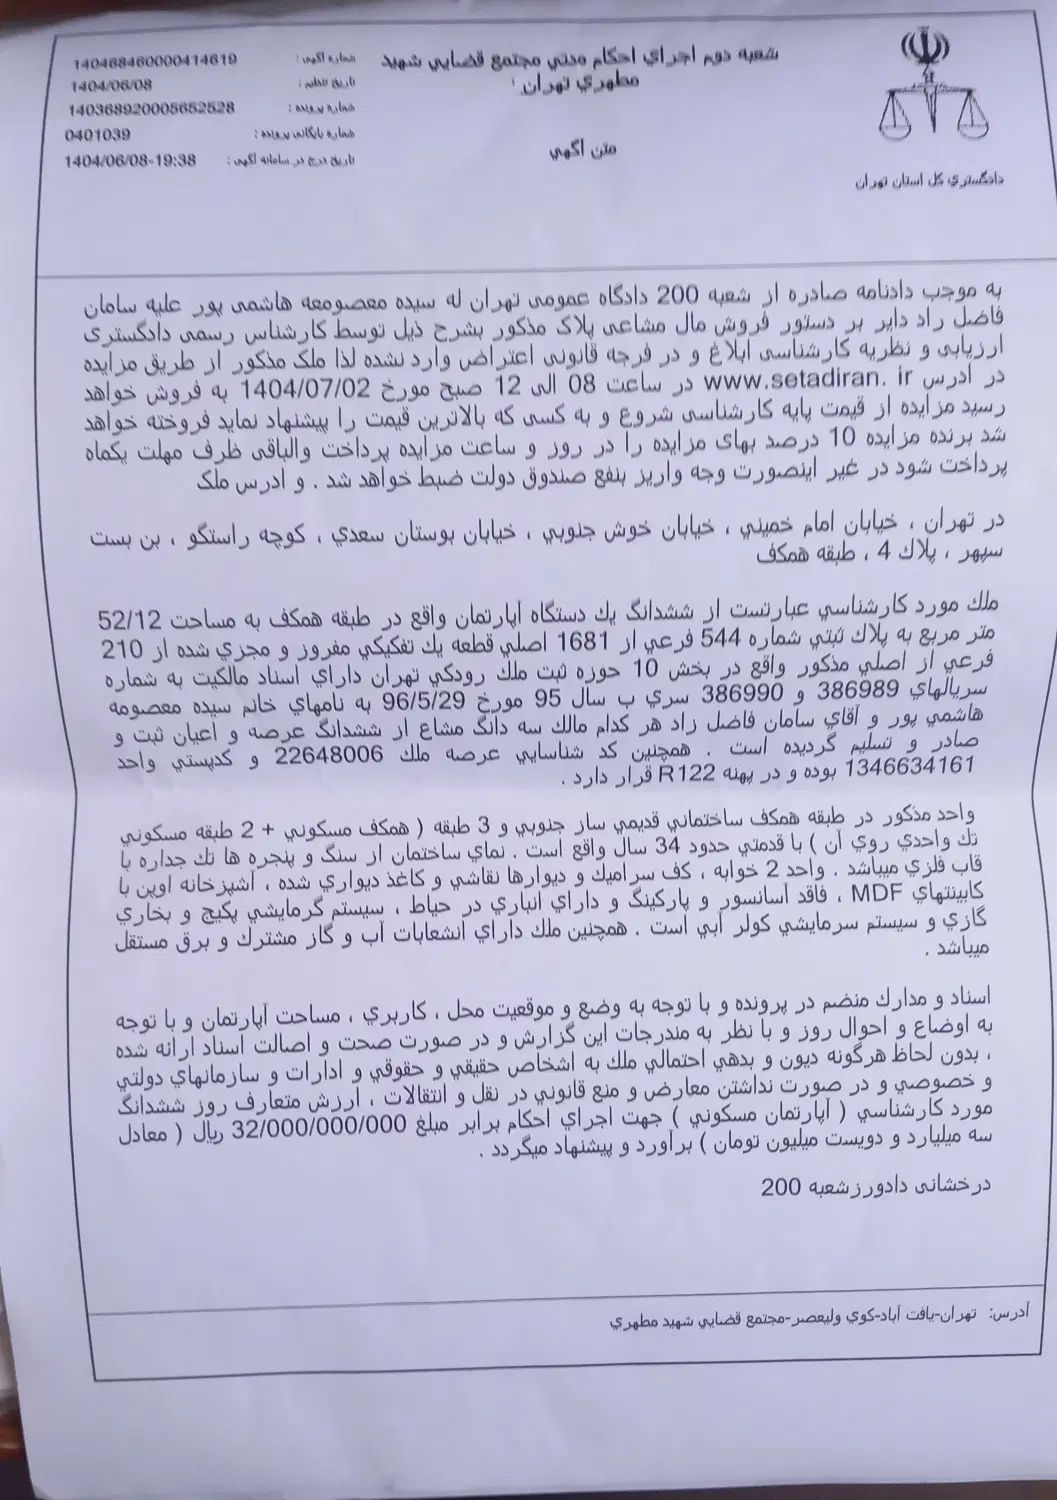 شعبه دوم اجراي احكام مدني مجتمع قضايي شهيد
مطهري تهران
متن آگهي
دادگستري كل استان تهران
شماره آگهي : 140468460000414619
تاريخ تنظيم : 1404/06/08
شماره پرونده : 140368920005652528
شماره بايگاني پرونده : 0401039
تاريخ درج در سامانه آگهي : 1404/06/08-19:38
به موجب دادنامه صادره از شعبه 200 دادگاه عمومی تهران له سیده معصومعه هاشمی پور علیه سامان
فاضل راد دایر بر دستور فروش مال مشاعی پلاک مذکور بشرح ذیل توسط کارشناس رسمی دادگستری
ارزیابی و نظریه کارشناسی ابلاغ و در فرجه قانونی اعتراض وارد نشده لذا ملک مذکور از طریق مزایده
در ادرس www.setadiran. ir در ساعت 08 الی 12 صبح مورخ 1404/07/02 به فروش خواهد
رسید مزایده از قیمت پایه کارشناسی شروع و به کسی که بالاترین قیمت را پیشنهاد نماید فروخته خواهد
شد برنده مزایده 10 درصد بهای مزایده را در روز و ساعت مزایده پرداخت والباقی ظرف مهلت یکماه
پرداخت شود در غیر اینصورت وجه واریز بنفع صندوق دولت ضبط خواهد شد . و ادرس ملک
در تهران ، خيابان امام خميني ، خيابان خوش جنوبي ، خيابان بوستان سعدي ، كوچه راستگو ، بن بست
سپهر ، پلاك 4 ، طبقه همكف
ملك مورد كارشناسي عبارتست از ششدانگ يك دستگاه آپارتمان واقع در طبقه همكف به مساحت 52/12
متر مربع به پلاك ثبتي شماره 544 فرعي از 1681 اصلي قطعه يك تفكيكي مفروز و مجزي شده از 210
فرعي از اصلي مذكور واقع در بخش 10 حوزه ثبت ملك رودكي تهران داراي اسناد مالكيت به شماره
سريالهاي 386989 و 386990 سري ب سال 95 مورخ 96/5/29 به نامهاي خانم سيده معصومه
هاشمي پور و آقاي سامان فاضل راد هر كدام مالك سه دانگ مشاع از ششدانگ عرصه و اعيان ثبت و
صادر و تسليم گرديده است . همچنين كد شناسايي عرصه ملك 22648006 و كدپستي واحد
1346634161 بوده و در پهنه R122 قرار دارد .
واحد مذكور در طبقه همكف ساختماني قديمي ساز جنوبي و 3 طبقه ( همكف مسكوني + 2 طبقه مسكوني
تك واحدي روي آن ) با قدمتي حدود 34 سال واقع است . نماي ساختمان از سنگ و پنجره ها تك جداره با
قاب فلزي ميباشد . واحد 2 خوابه ، كف سراميك و ديوارها نقاشي و كاغذ ديواري شده ، آشپزخانه اوپن با
كابينتهاي MDF ، فاقد آسانسور و پاركينگ و داراي انباري در حياط ، سيستم گرمايشي پكيج و بخاري
گازي و سيستم سرمايشي كولر آبي است . همچنين ملك داراي انشعابات آب و گاز مشترك و برق مستقل
ميباشد .
اسناد و مدارك منضم در پرونده و با توجه به وضع و موقعيت محل ، كاربري ، مساحت آپارتمان و با توجه
به اوضاع و احوال روز و با نظر به مندرجات اين گزارش و در صورت صحت و اصالت اسناد ارائه شده
، بدون لحاظ هرگونه ديون و بدهي احتمالي ملك به اشخاص حقيقي و حقوقي و ادارات و سازمانهاي دولتي
و خصوصي و در صورت نداشتن معارض و منع قانوني در نقل و انتقالات ، ارزش متعارف روز ششدانگ
مورد كارشناسي ( آپارتمان مسكوني ) جهت اجراي احكام برابر مبلغ 32/000/000/000 ريال ( معادل
سه ميليارد و دويست ميليون تومان ) برآورد و پيشنهاد ميگردد .
درخشانی دادورزشعبه 200
آدرس: تهران-يافت آباد-كوي وليعصر-مجتمع قضايي شهيد مطهري